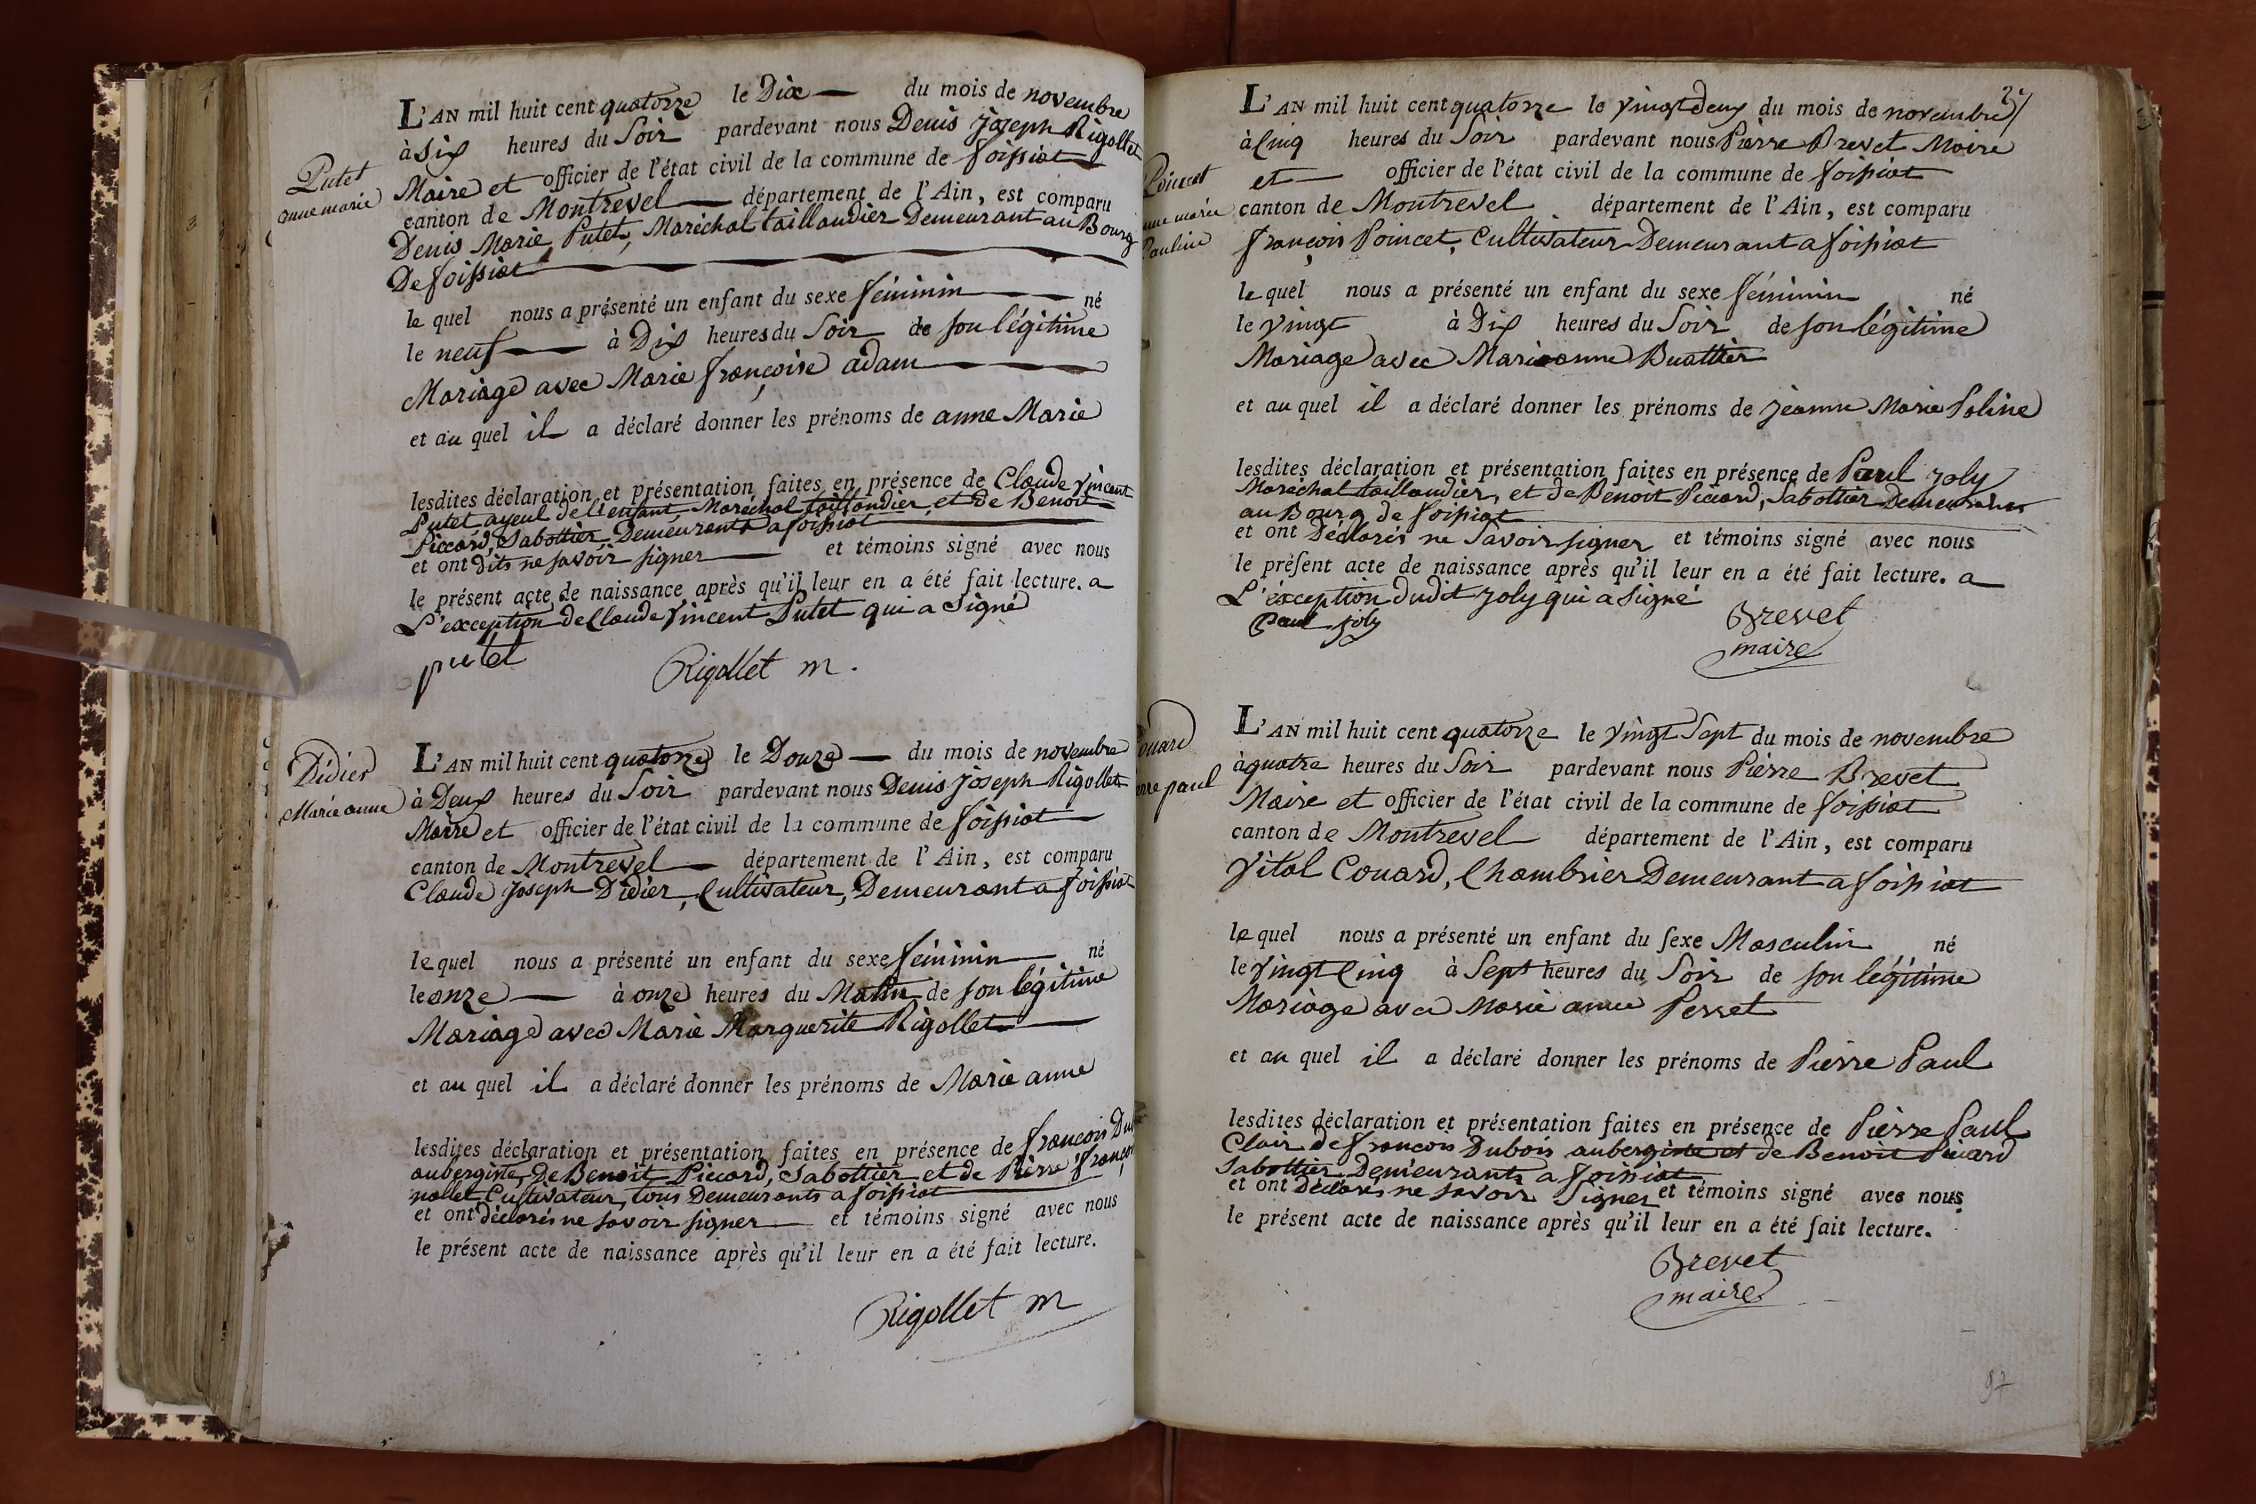 Putet
anne marie
L'AN mil huit cent quatorze le Dix du mois de novembre
à Six heures du Soir pardevant nous Denis Joseph Rigollet
Maire et officier de l'état civil de la commune de foissiat
canton de Montrevel département de l'Ain, est comparu
Denis Marie Putet, Maréchal taillandier Demeurant au Bourg
De foissiat
le quel nous a présenté un enfant du sexe féminin né
le neuf à Dix heures du Soir de son légitime
Mariage avec Marie françoise adam
et au quel il a déclaré donner les prénoms de anne Marie
lesdites déclaration et présentation faites en présence de Claude Vincent
Putet ayeul de l'enfant Maréchal taillandier, et de Benoit
Piccard, Sabottier Demeurants a foissiat
et ont dits ne savoir signer et témoins signé avec nous
le présent acte de naissance après qu'il leur en a été fait lecture. a
L'exception de Claude Vincent Putet qui a Signé
putet
Rigollet m.
Didier
Marie anne
L'AN mil huit cent quatorze le Douze du mois de novembre
à Deux heures du Soir pardevant nous Denis Joseph Rigollet
Maire et officier de l'état civil de la commune de foissiat
canton de Montrevel département de l'Ain, est comparu
Claude Joseph Didier, Cultivateur, Demeurant a foissiat
le quel nous a présenté un enfant du sexe féminin né
le onze à onze heures du Matin de son légitime
Mariage avec Marie Marguerite Rigollet
et au quel il a déclaré donner les prénoms de Marie anne
lesdites déclaration et présentation faites en présence de françois Du
aubergiste, De Benoit Piccard, Sabottier et de Pierre françois
nallet Cultivateur, tous Demeurants a foissiat
et ont déclarés ne savoir signer et témoins signé avec nous
le présent acte de naissance après qu'il leur en a été fait lecture.
Rigollet m
27
Poincet
nne marie
Pauline
L'AN mil huit cent quatorze le vingt deux du mois de novembre
à Cinq heures du Soir pardevant nous Pierre Brevet Maire
et officier de l'état civil de la commune de foissiat
canton de Montrevel département de l'Ain, est comparu
françois Poincet, Cultivateur Demeurant a foissiat
le quel nous a présenté un enfant du sexe féminin né
le vingt à Dix heures du Soir de son légitime
Mariage avec Marie anne Buattier
et au quel il a déclaré donner les prénoms de jeanne Marie Poline
lesdites déclaration et présentation faites en présence de Paul joly
Maréchal taillandier, et de Benoit Piccard, Sabottier Demeurants
au Bourg de foissiat
et ont Déclarés ne Savoir signer et témoins signé avec nous
le présent acte de naissance après qu'il leur en a été fait lecture. a
L'exception dudit joly qui a Signé
Paul joly
Brevet
maire
Couard
erre paul
L'AN mil huit cent quatorze le vingt Sept du mois de novembre
à quatre heures du Soir pardevant nous Pierre Brevet
Maire et officier de l'état civil de la commune de foissiat
canton de Montrevel département de l'Ain, est comparu
Vital Couard, Chambrier Demeurant a foissiat
le quel nous a présenté un enfant du sexe Masculin né
le vingt Cinq à Sept heures du Soir de son légitime
Mariage avec Marie anne Perret
et au quel il a déclaré donner les prénoms de Pierre Paul
lesdites déclaration et présentation faites en présence de Pierre Paul
Clair de françois Dubois aubergiste et de Benoit Picard
Sabottier Demeurants a foissiat
et ont Déclarés ne savoir Signer et témoins signé avec nous
le présent acte de naissance après qu'il leur en a été fait lecture.
Brevet
maire
87